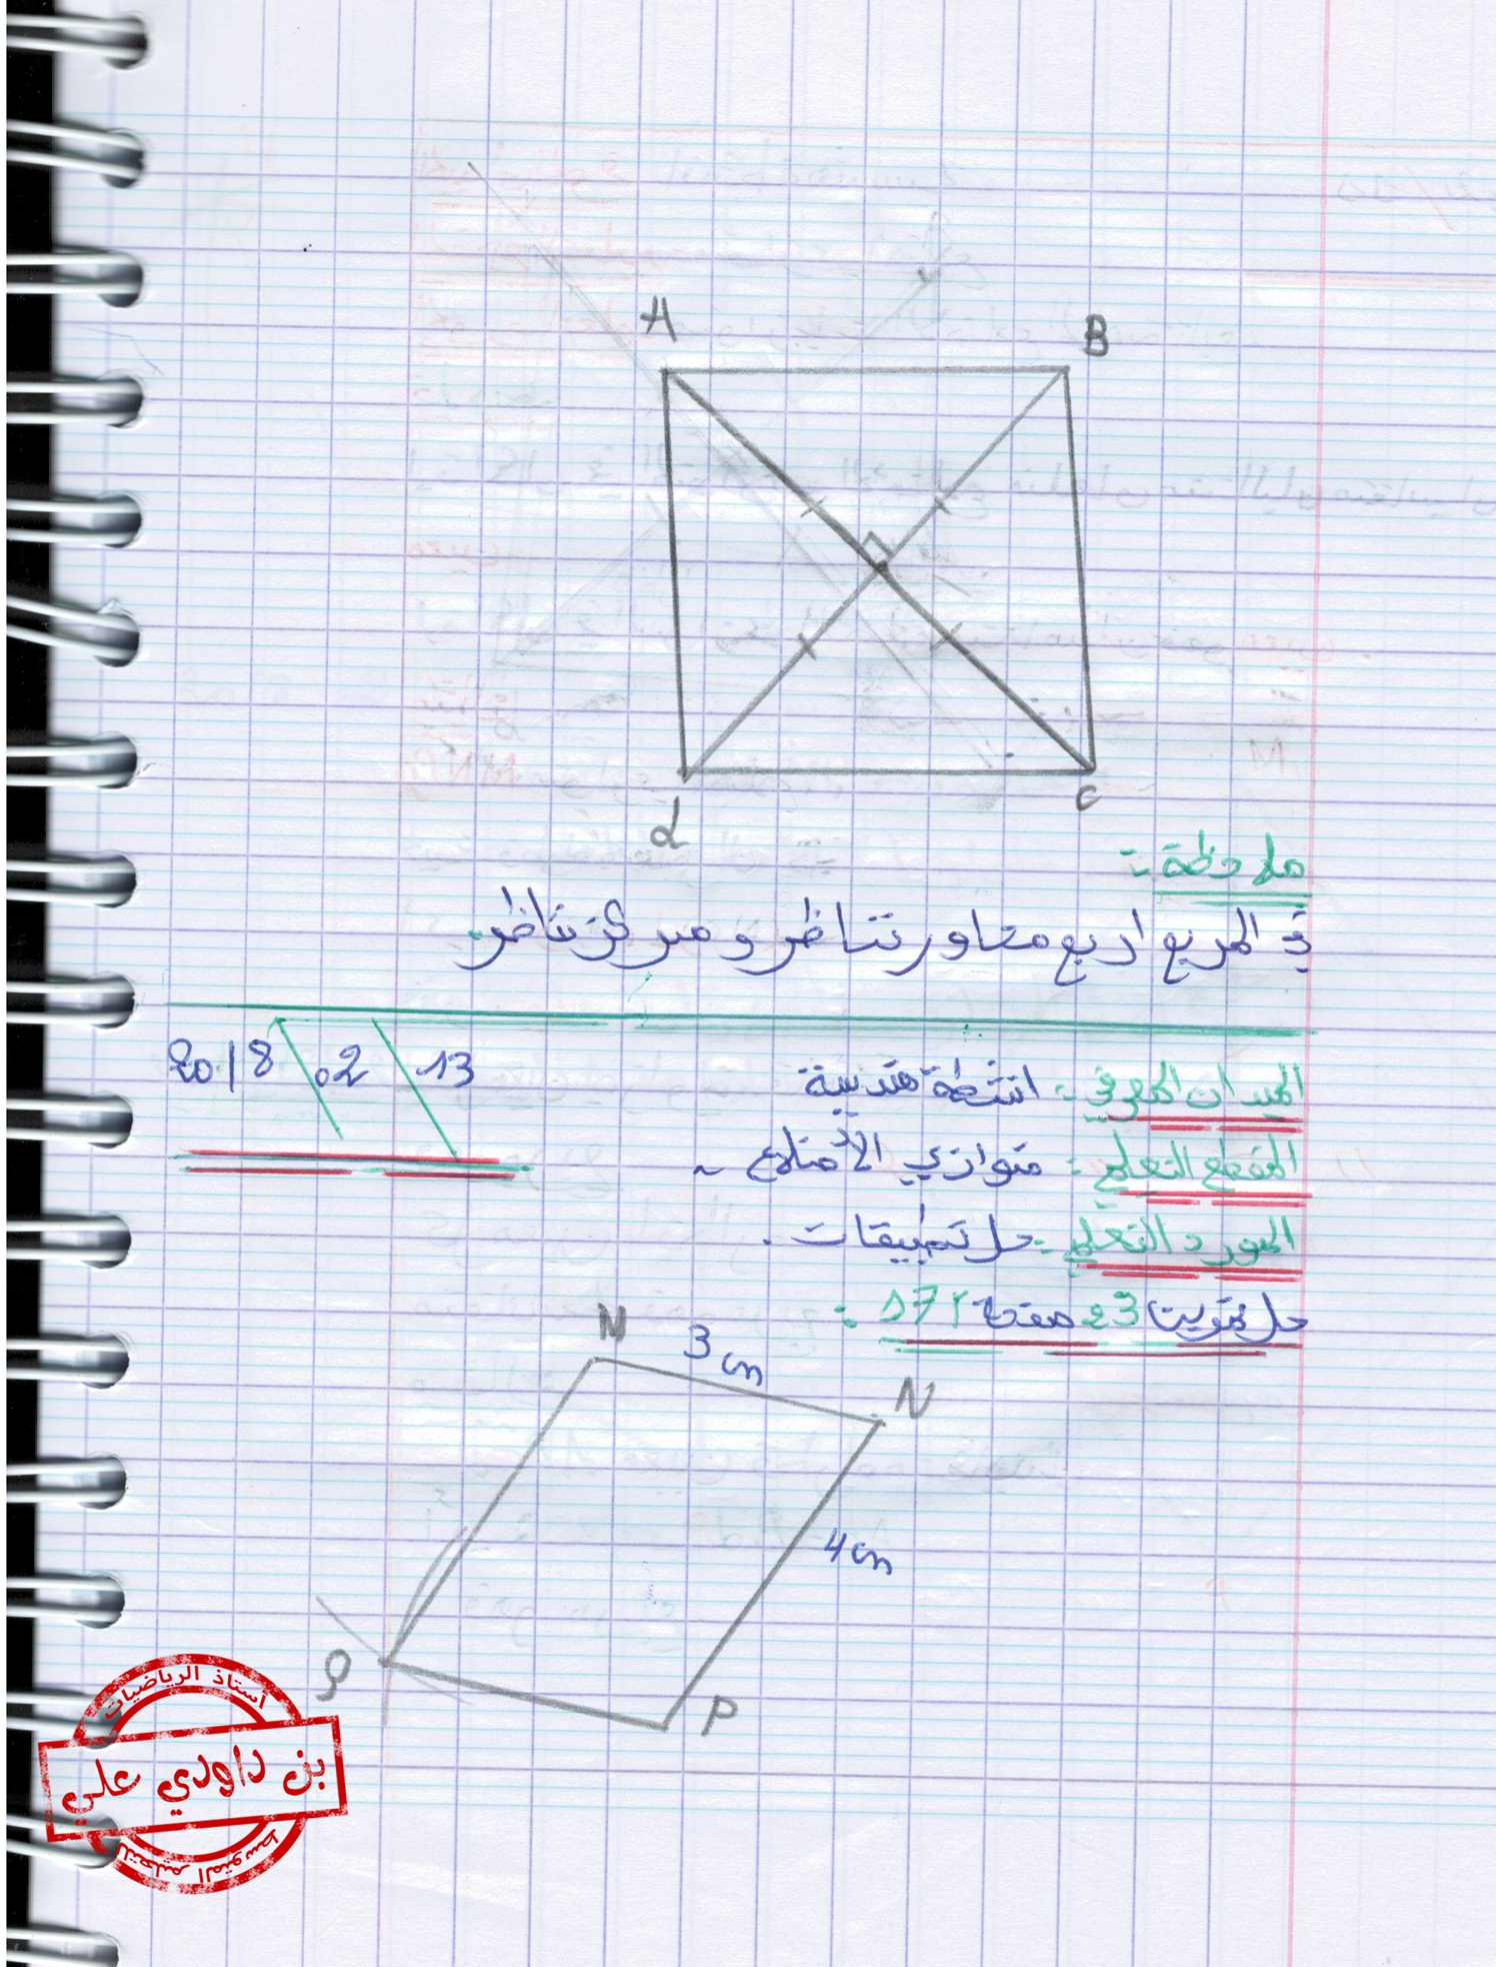 A
B
d
C
ملاحظة :
في المربع اربع محاور تناظر و مركز تناظر.
2018 \ 02 \ 13
الميدان المعرفي : انشطة هندسية
المقطع التعلمي : متوازي الأضلاع ~
المورد التعلمي : حل تطبيقات .
حل تمرين 23 صفحة 171 :
M
3 cm
N
4 cm
Q
P
أستاذ الرياضيات
بن داودي علي
للتعليم المتوسط